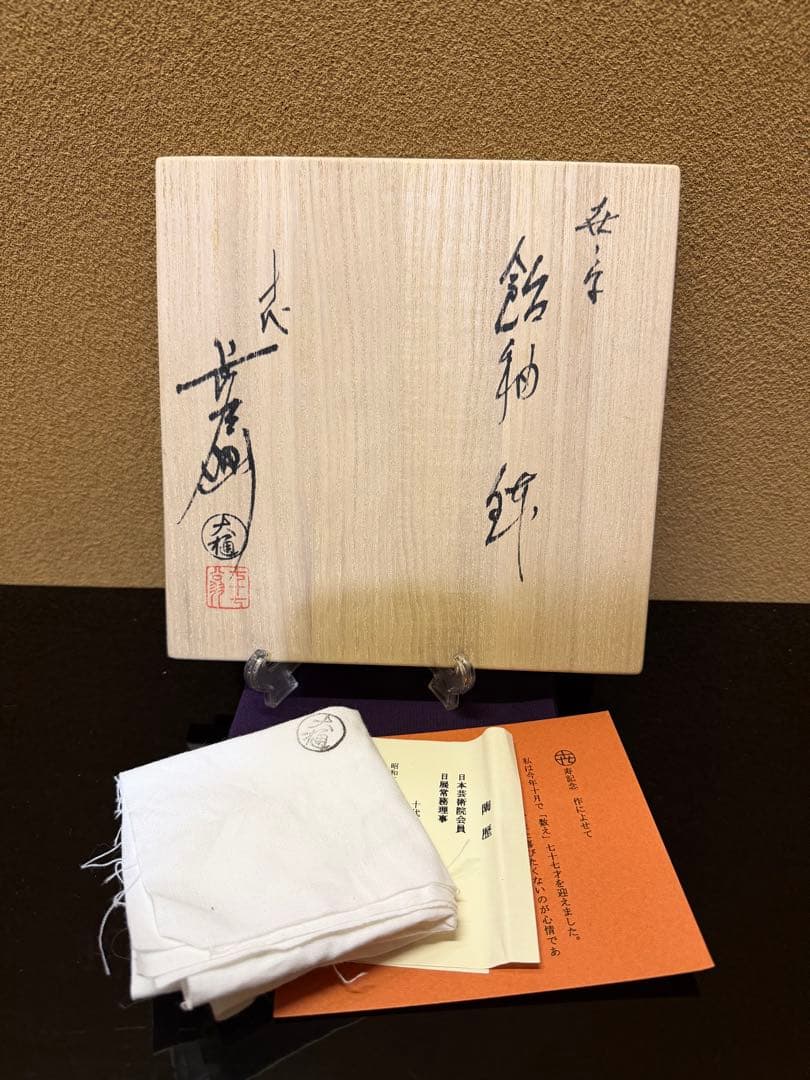 喜寿
飴釉 鉢
十代
長左衛門
大樋
大樋
陶歴
日本芸術院会員
日展常務理事
昭和
十代
寿記念 作によせて
私は今年十月で「数え」七十七才を迎えました。
びたくないのが心情であ